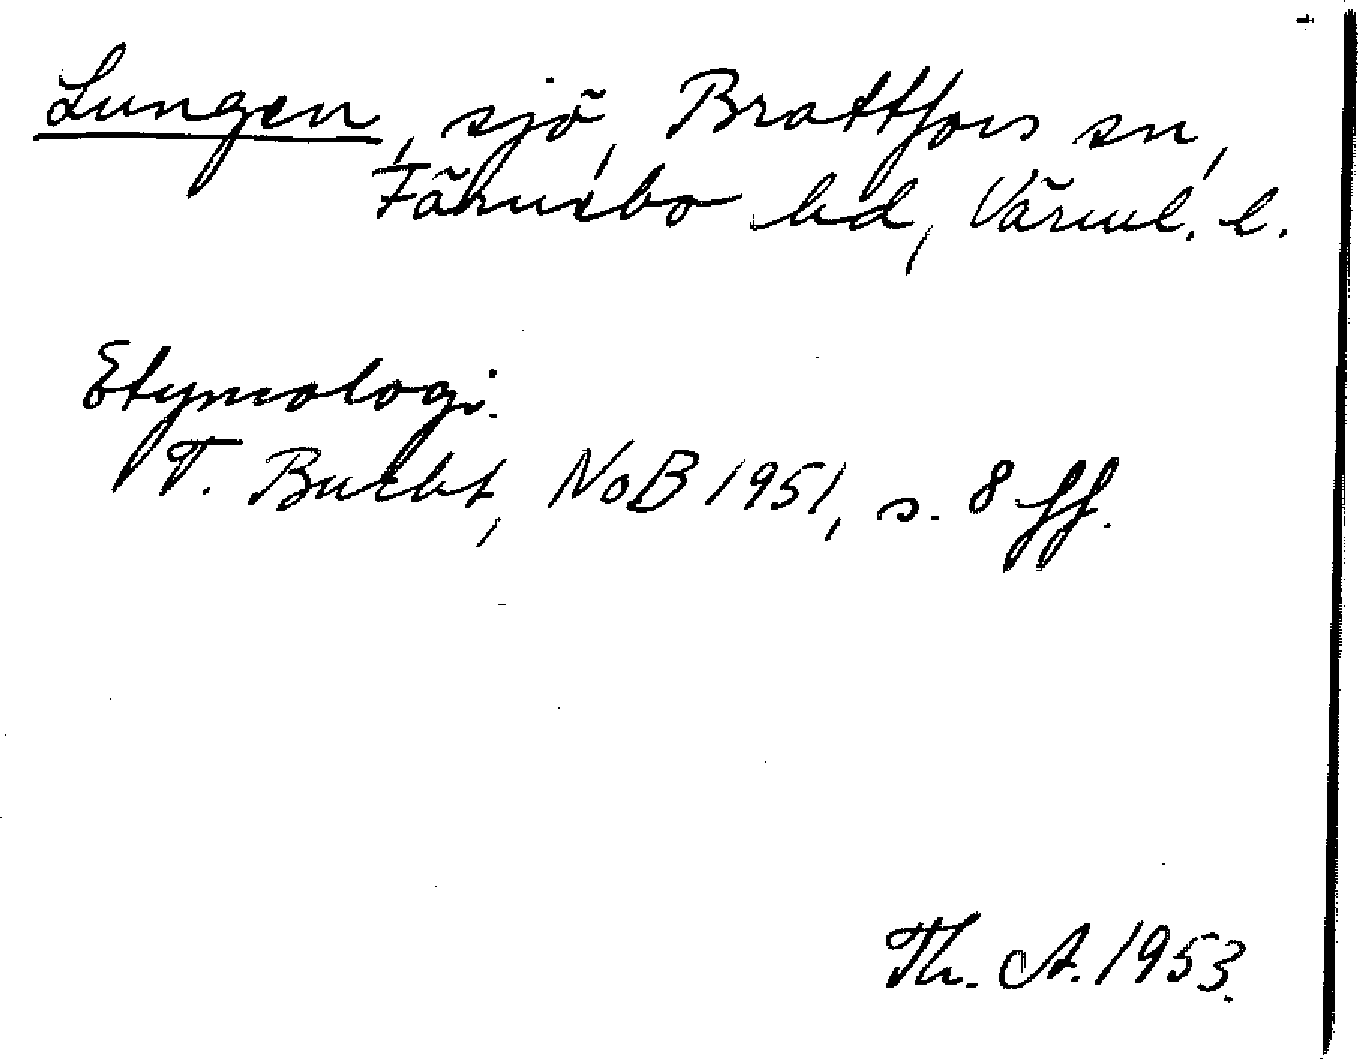 Lungen, sjö, Brattfors sn,
Färnebo hd, Värml. l.
Etymologi.
T. Bucht, NoB 1951, s. 8 ff.
Th. A. 1953.